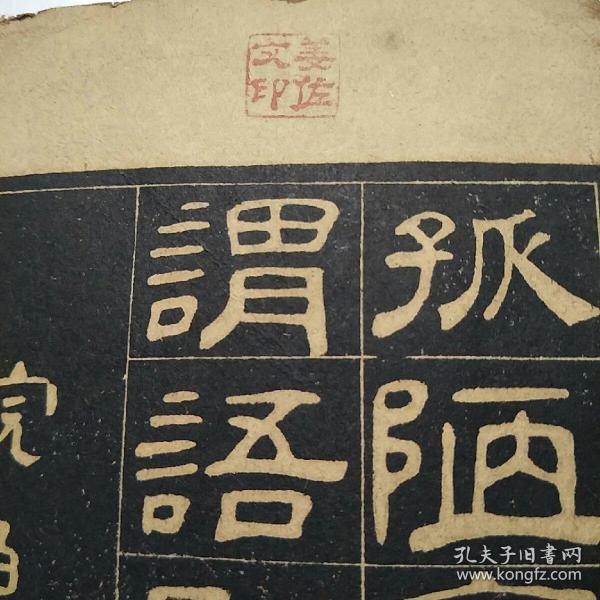 姜佐
文印
孤陋
謂語
完
孔夫子旧書网
www.kongfz.com